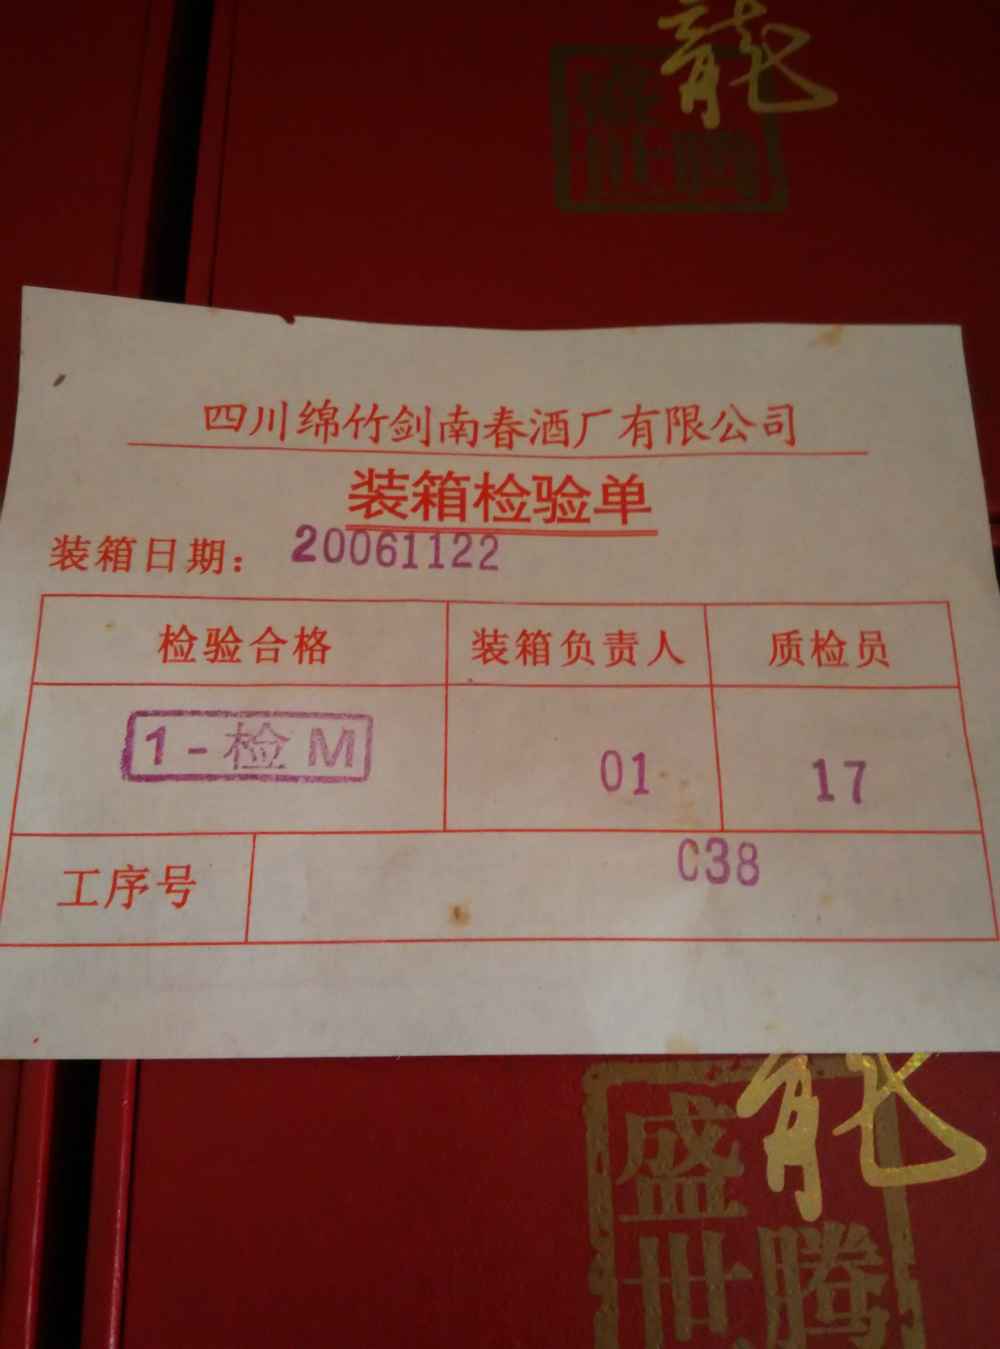 龍
盛
世腾
四川绵竹剑南春酒厂有限公司
装箱检验单
装箱日期：20061122
检验合格 装箱负责人 质检员
1-检M 01 17
工序号 C38
龍
盛
世腾